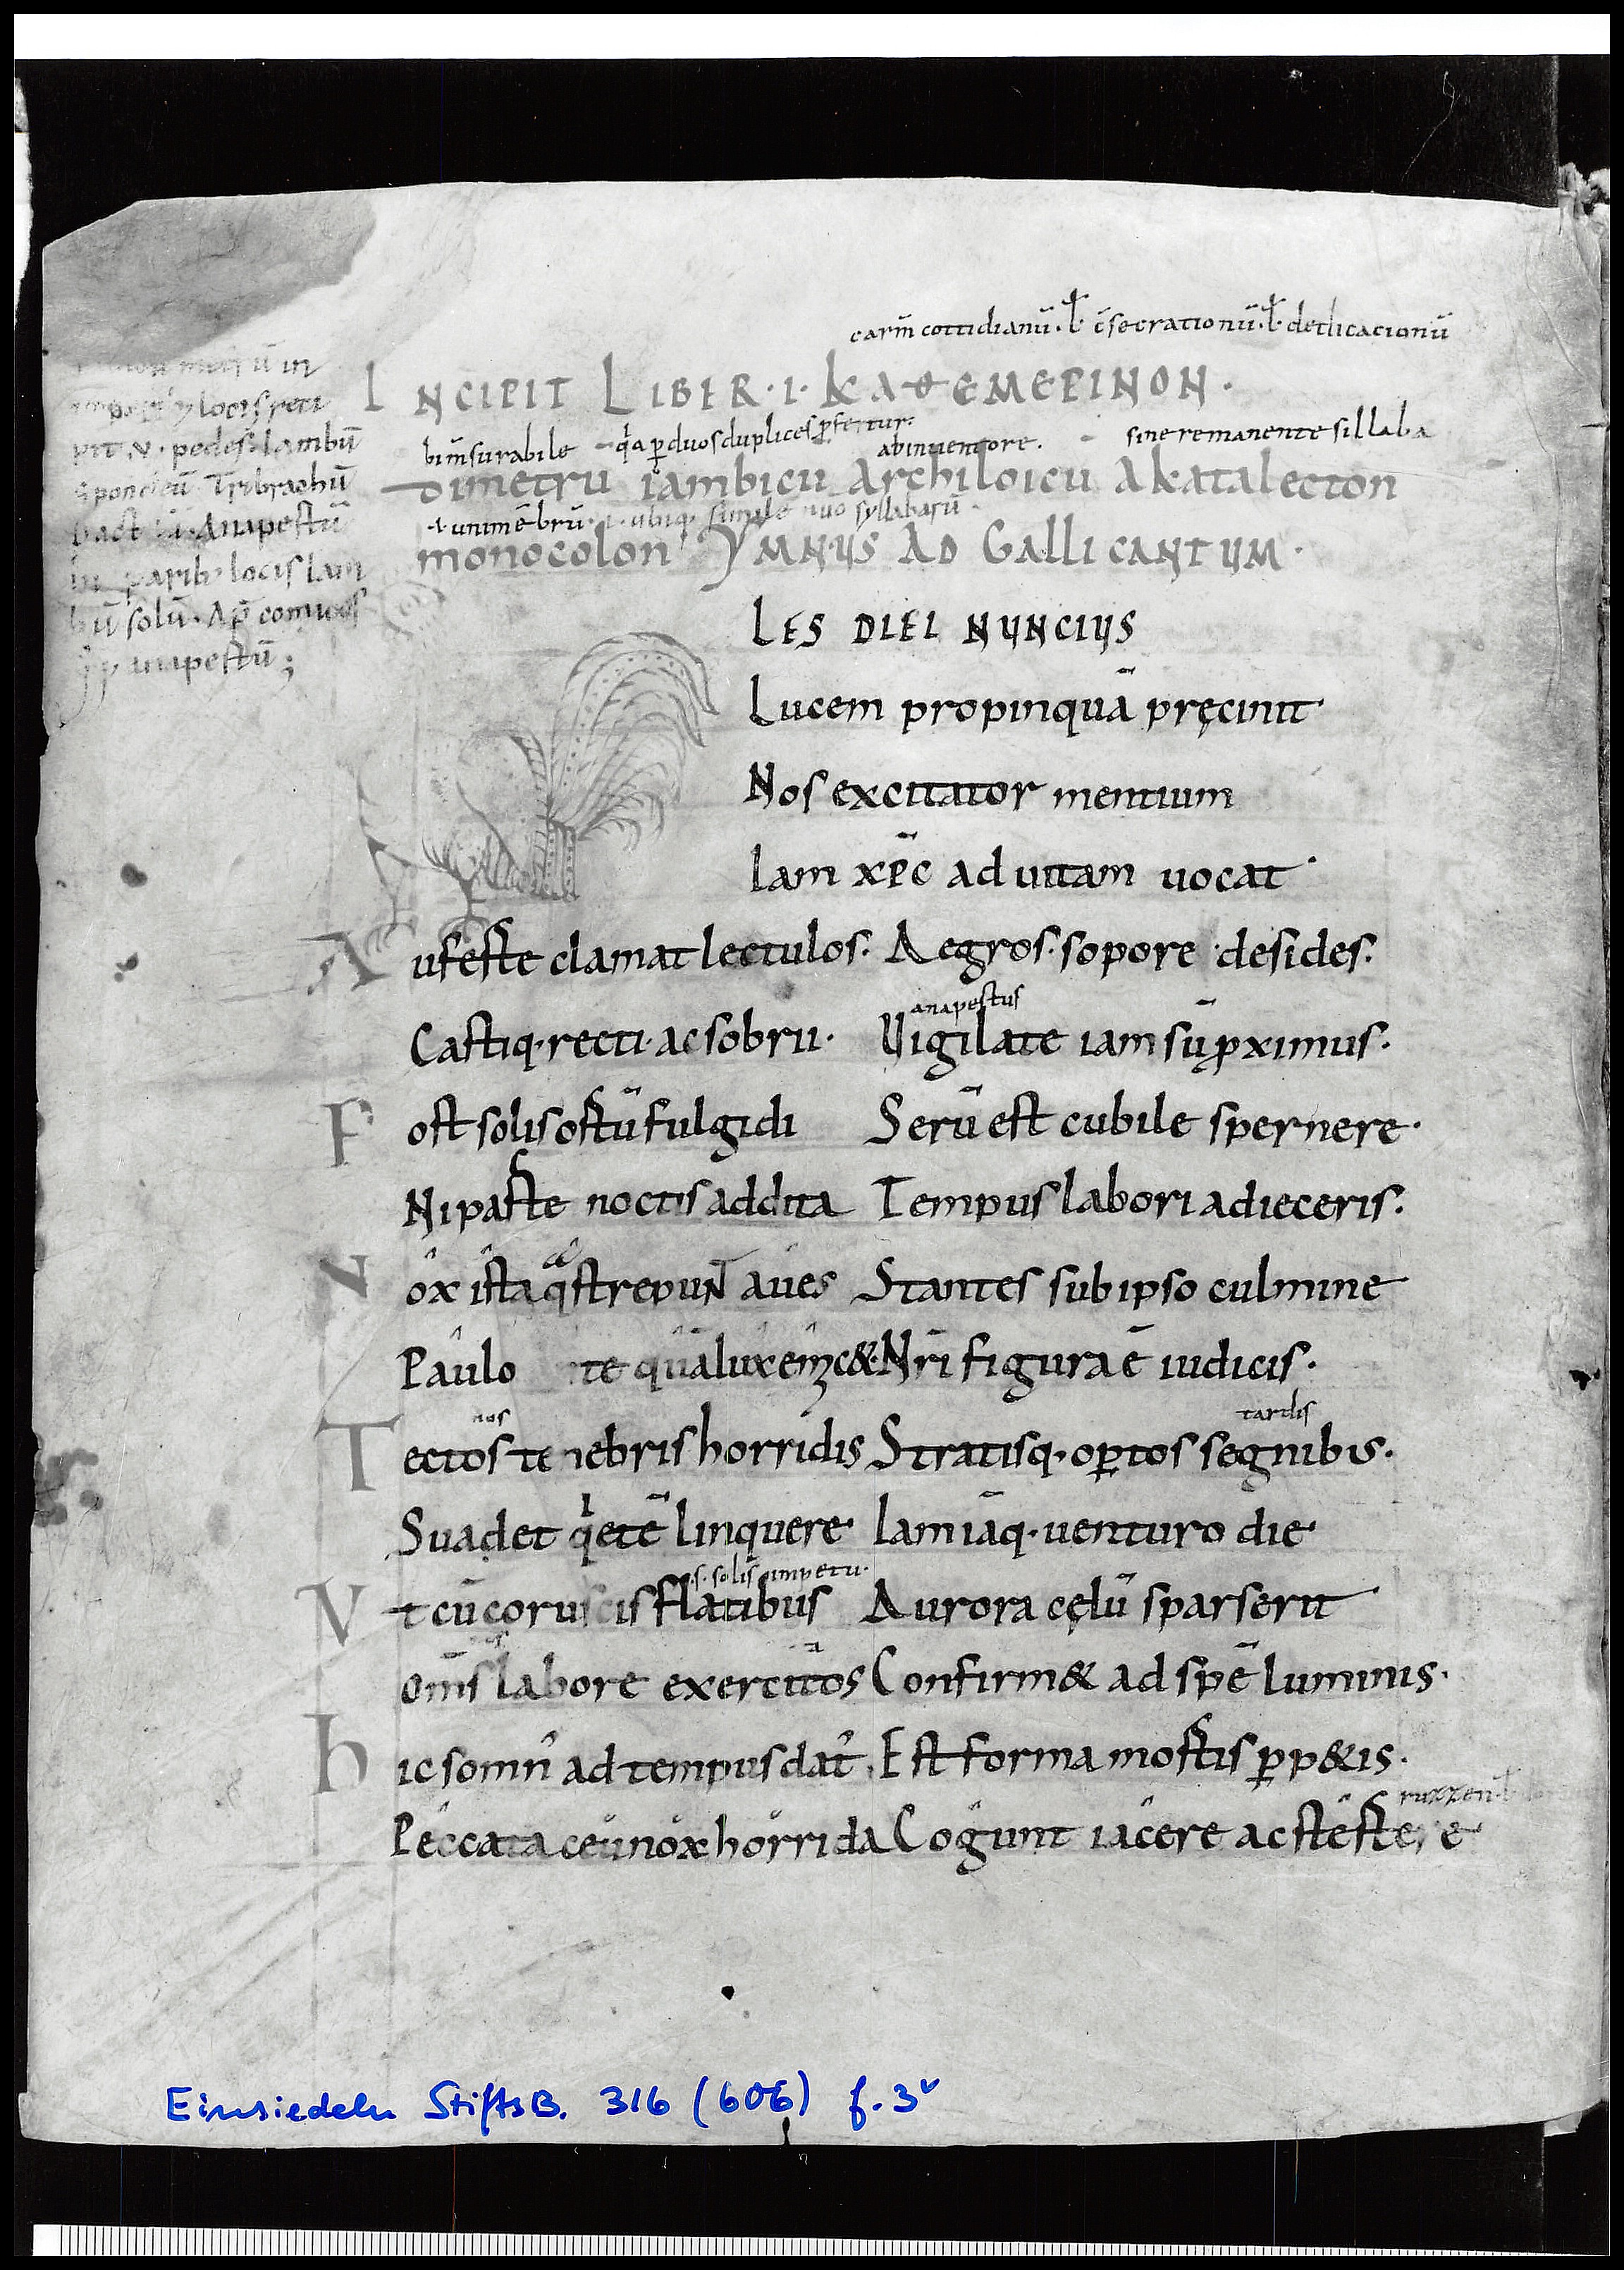 carm̄ cottidianū · ł c̄secrationū · ł dedicacionū
INCIPIT LIBER · I · KAΘEMEPINON ·
bim̄surabile qͥa ꝑ duos duplices ꝑfertur · ab inuentore · sine remanente sillaba
dimetru iambicu archiloicu akatalecton
·i· unimēbrū · ubiq· simile syllabarū
monocolon YMNUS AD GALLI CANTUM ·
metrū in
locis reci
pit · V · pedes · Iambū
spondeū Tribrachū
Anapestū
In parib; locis Iam
bū solū · Ap̄ comicos
anapestū;
LES DIEI NUNCIUS
Lucem propinquā pręcinit
Nos excitator mentium
Iam xp̄c ad uitam uocat ·
Auferte clamat lectulos · Aegros · sopore desides ·
anapestus
Castiq· recti · ac sobrii · Uigilate iam sū ꝓximus ·
Post solis ortū fulgidi Serū est cubile spernere ·
Ni parte noctis addita Tempus labori adieceris ·
Nox ista qͣ strepunt aues Stantes sub ipso culmine
Paulo te quā lux emic& · Nr̄i figura ē iudicis ·
nos tardis
Tectos tenebris horridis Stratisq· oꝑtos segnibus ·
Suadet qͥetē linquere Iam iāq· uenturo die
·s· solis impetu ·
Vt cū coruscis flatibus Aurora cęlū sparserit
Om̄s labore exercitos Confirm& ad spē luminis ·
hic somn̄ ad tempus dat Est forma mortis ꝑp&is ·
Peccata ceu nox horrida Cogunt iacere ac stertere
Einsiedeln StiftsB. 316 (606) f. 3ᵛ